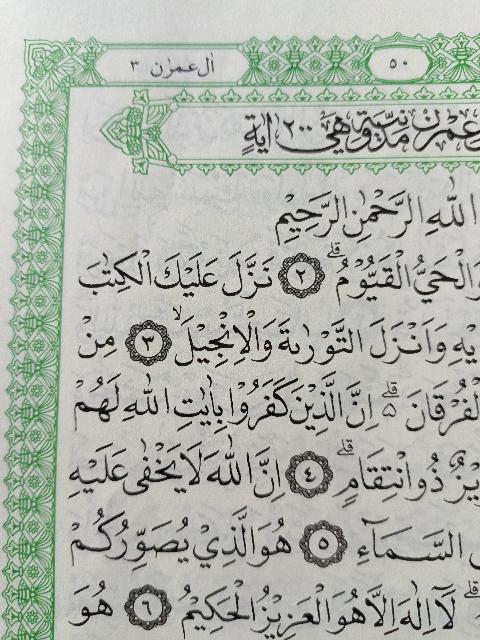 اٰل عمرٰن ٣
٥٠
عمرٰن مدنية وهي ٢٠٠ اٰية
اللّٰهِ الرَّحْمٰنِ الرَّحِيْمِ
الْحَيُّ الْقَيُّوْمُ ۗ ٢ نَزَّلَ عَلَيْكَ الْكِتٰبَ
يْهِ وَاَنْزَلَ التَّوْرٰىةَ وَالْاِنْجِيْلَ ۙ ٣ مِنْ
الْفُرْقَانَ ەۗ اِنَّ الَّذِيْنَ كَفَرُوْا بِاٰيٰتِ اللّٰهِ لَهُمْ
يْزٌ ذُو انْتِقَامٍ ۗ ٤ اِنَّ اللّٰهَ لَا يَخْفٰى عَلَيْهِ
السَّمَاۤءِ ٥ هُوَ الَّذِيْ يُصَوِّرُكُمْ
لَآ اِلٰهَ اِلَّا هُوَ الْعَزِيْزُ الْحَكِيْمُ ٦ هُوَ